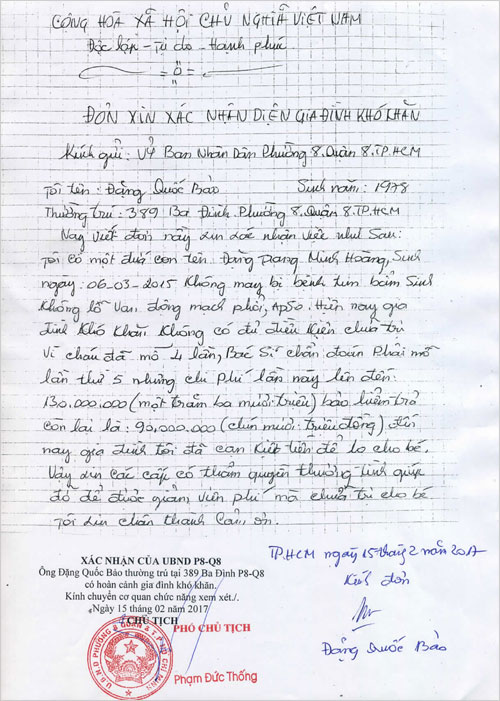 CỘNG HÒA XÃ HỘI CHỦ NGHĨA VIỆT NAM
Độc lập - Tự do - Hạnh phúc
ĐƠN XIN XÁC NHẬN DIỆN GIA ĐÌNH KHÓ KHĂN
Kính gửi: Uỷ Ban Nhân Dân Phường 8. Quận 8. TP.HCM
Tôi tên: Đặng Quốc Bảo Sinh năm: 1978
Thường trú: 389 Ba Đình. Phường 8. Quận 8. TP.HCM
Nay viết đơn này xin xác nhận việc như sau:
Tôi có một đứa con tên: Đặng Minh Hoàng, Sinh
ngày: 06-03-2015 Không may bị bệnh tim bẩm sinh
không lỗ van động mạch phổi, Apso. Hiện nay gia
đình khó khăn không có đủ điều kiện chữa trị
Vì cháu đã mổ 4 lần, Bác Sĩ chẩn đoán phải mổ
lần thứ 5 nhưng chi phí lần này lên đến:
130.000.000 (một trăm ba mươi triệu) bảo hiểm trả
còn lại là: 90.000.000 (chín mươi triệu đồng) đến
nay gia đình tôi đã cạn kiệt tiền để lo cho bé.
Vậy xin các cấp có thẩm quyền thương tình giúp
đỡ để được giảm viện phí mà chữa trị cho bé
Tôi xin chân thành cảm ơn.
TP.HCM ngày 15 tháng 2 năm 2017
Kính đơn
Đặng Quốc Bảo
XÁC NHẬN CỦA UBND P8-Q8
Ông Đặng Quốc Bảo thường trú tại 389 Ba Đình P8-Q8
có hoàn cảnh gia đình khó khăn.
Kính chuyển cơ quan chức năng xem xét./.
Ngày 15 tháng 02 năm 2017
CHỦ TỊCH
PHÓ CHỦ TỊCH
U.B.N.D PHƯỜNG 8 QUẬN 8 T.P HỒ CHÍ MINH
Phạm Đức Thống